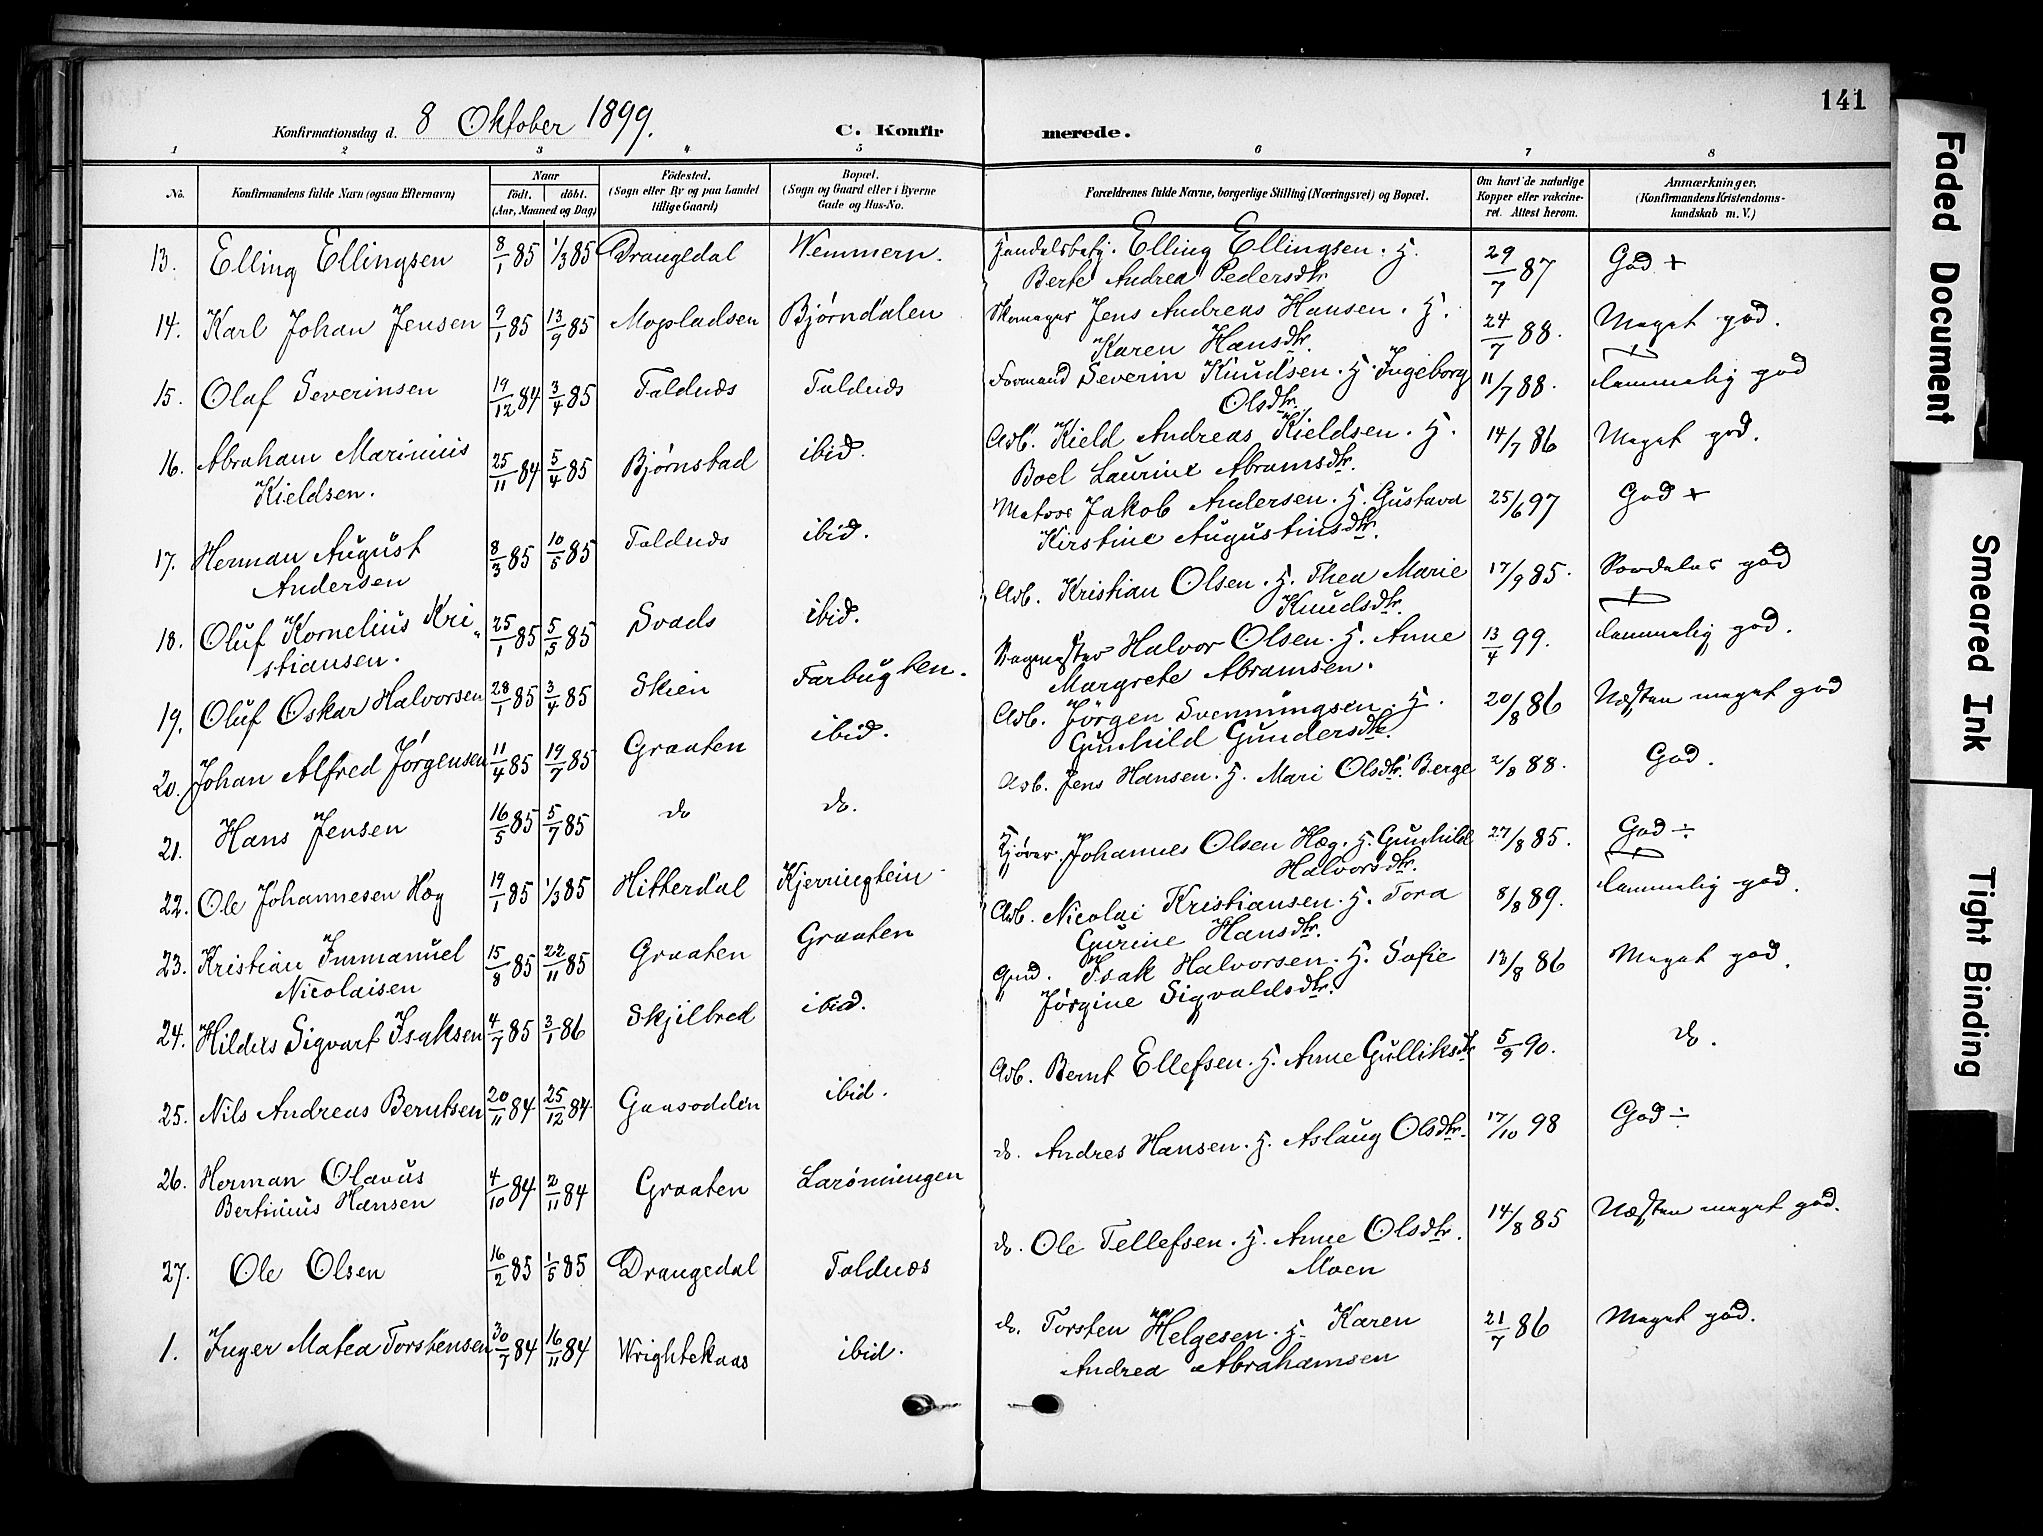 141
Konfirmationsdag d. 8 Oktober 1899.
C. Konfirmerede.
1 2 3 4 5 6 7 8
No.
Konfirmandens fulde Navn (ogsaa Efternavn)
Naar
født. døbt.
(Aar, Maaned og Dag)
Fødested.
(Sogn eller By og paa Landet
tillige Gaard)
Bopæl.
(Sogn og Gaard eller i Byerne
Gade og Hus-No.
Forældrenes fulde Navne, borgerlige Stilling (Næringsvei) og Bopæl.
Om havt de naturlige
Kopper eller vakcine-
ret. Attest herom.
Anmærkninger,
(Konfirmandens Kristendoms-
kundskab m. V.)
13. Elling Ellingsen 8/1 85 1/3 85 Drangedal Wemmern. Handelsbetj. Elling Ellingsen. H. 29/7 87 God +
Berte Andrea Pedersdtr
14. Karl Johan Jensen 9/1 85 13/9 85 Mopladsen Bjørndalen Skomager Jens Andreas Hansen. H. 24/7 88. Meget god.
Karen Hansdtr.
15. Olaf Severinsen 19/12 84 3/4 85 Faldnæs Faldnæs Formand Severin Knudsen. H. Ingeborg 11/7 88. temmelig god
Olsdtr.
16. Abraham Marinius 25/11 84 5/4 85 Bjørnstad ibid. Arb. Kield Andreas Kieldsen. H. 14/7 86 Meget god.
Kieldsen. Boel Laurine Abramsdtr.
17. Herman August 8/3 85 10/5 85 Faldnæs ibid. Matros Jakob Andersen. H. Gustava 25/6 97 God +
Andersen Kirstine Augustinsdtr.
18. Oluf Kornelius Kri- 25/1 85 5/5 85 Svads ibid. Arb. Kristian Olsen. H. Thea Marie 17/9 85. Særdeles god
stiansen. Knudsdtr.
19. Oluf Oskar Halvorsen 28/1 85 3/4 85 Skien Farbugten. Bagmester Halvor Olsen. H. Anne 13/4 99. temmelig god.
Margrete Abramsen.
20. Johan Alfred Jørgensen 11/4 85 19/7 85 Graaten ibid. Arb. Jørgen Svenningsen. H. 20/8 86 Næsten meget god
Gunhild Gundersdtr.
21. Hans Jensen 16/5 85 5/7 85 do do. Arb. Jens Hansen. H. Mari Olsdtr. Berge 2/8 88. God.
22. Ole Johannesen Hæg 19/1 85 1/3 85 Hitterdal Kjerringtein Kjører. Johannes Olsen Hæg. H. Gunhild 27/8 85. God ÷
Halvorsdtr.
23. Kristian Immanuel 15/8 85 22/11 85 Graaten Graaten Arb. Nicolai Kristiansen. H. Tora 8/8 89. temmelig god.
Nicolaisen Gurine Hansdtr.
24. Hilders Sigvart Isaksen 4/7 85 3/1 86 Skjilbred ibid. Isak Halvorsen. H. Sofie 13/8 86 Meget god.
Jørgine Sigvaldsdtr.
25. Nils Andreas Berntsen 20/11 84 25/12 84 Gaasodden ibid. Arb. Bernt Ellefsen. H. Anne Gulliksdtr 5/9 90. do.
26. Herman Olavus 4/10 84 2/11 84 Graaten Larønningen do. Andres Hansen. H. Aslaug Olsdtr. 17/10 98 God ÷
Bertinius Hansen
27. Ole Olsen 16/2 85 1/5 85 Drangedal Faldnæs do. Ole Tellefsen. H. Anne Olsdtr. 14/8 85 Næsten meget god.
Moen
1. Inger Matea Torstensen 30/7 84 16/11 84 Wrightekaas ibid. do. Torsten Helgesen. H. Karen 21/7 86 Meget god.
Andrea Abrahamsen
Faded Document
Smeared Ink
Tight Binding